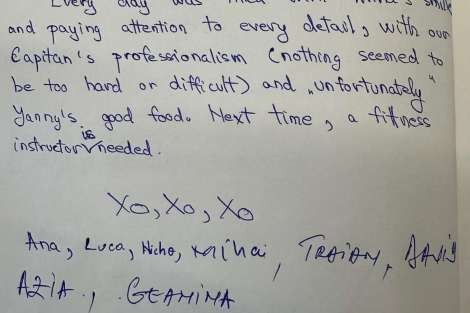 Every day was
and paying attention to every detail, with our
Capitan's professionalism (nothing seemed to
be too hard or difficult) and „unfortunately"
Yanny's good food. Next time, a fitness
instructor is needed.
XO, XO, XO
Ana, Luca, Nicho, Mihai, TRAIAN,
AZIA., GEANINA